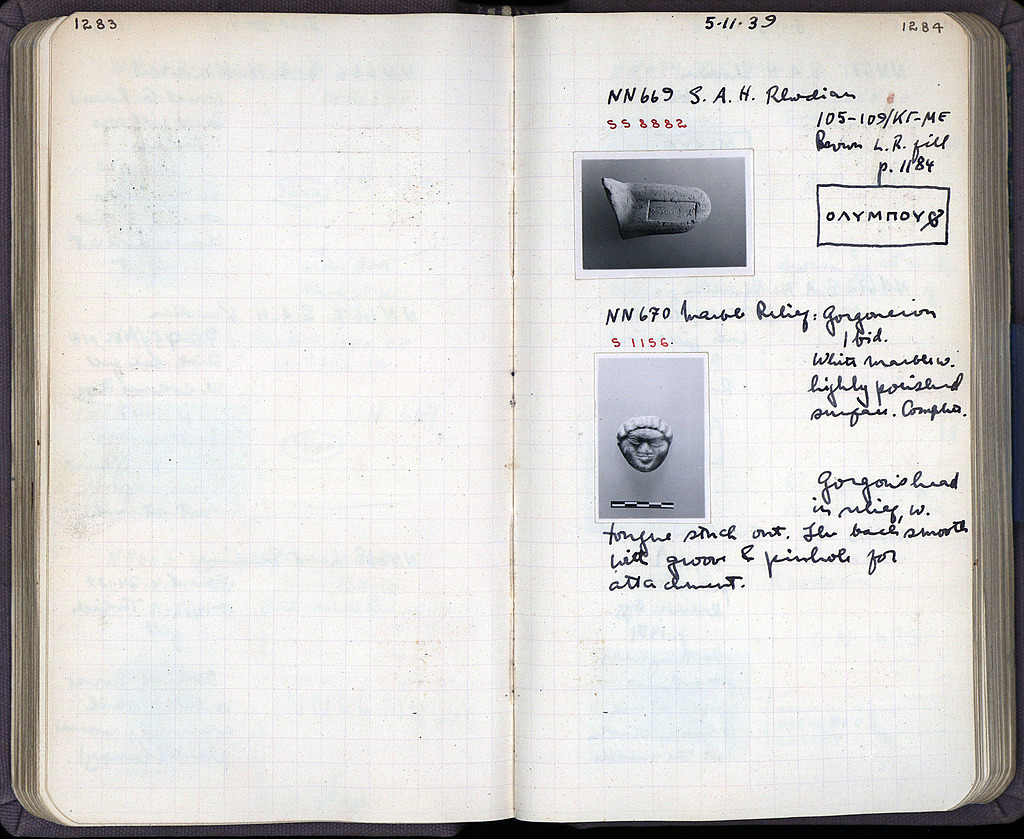 1283
5·11·39
1284
NN669 S.A.H. Rhodian
SS 8882
105-109/ΚΓ-ΜΕ
L.R. fill
p. 1184
ΟΛΥΜΠΟΥ
NN670 Marble Relief: Gorgoneion
S 1156.
Ibid.
White marble w.
highly polished
surface. Complete.
Gorgon's head
in relief, w.
tongue stuck out. The back smooth
with groove & pinhole for
attachment.